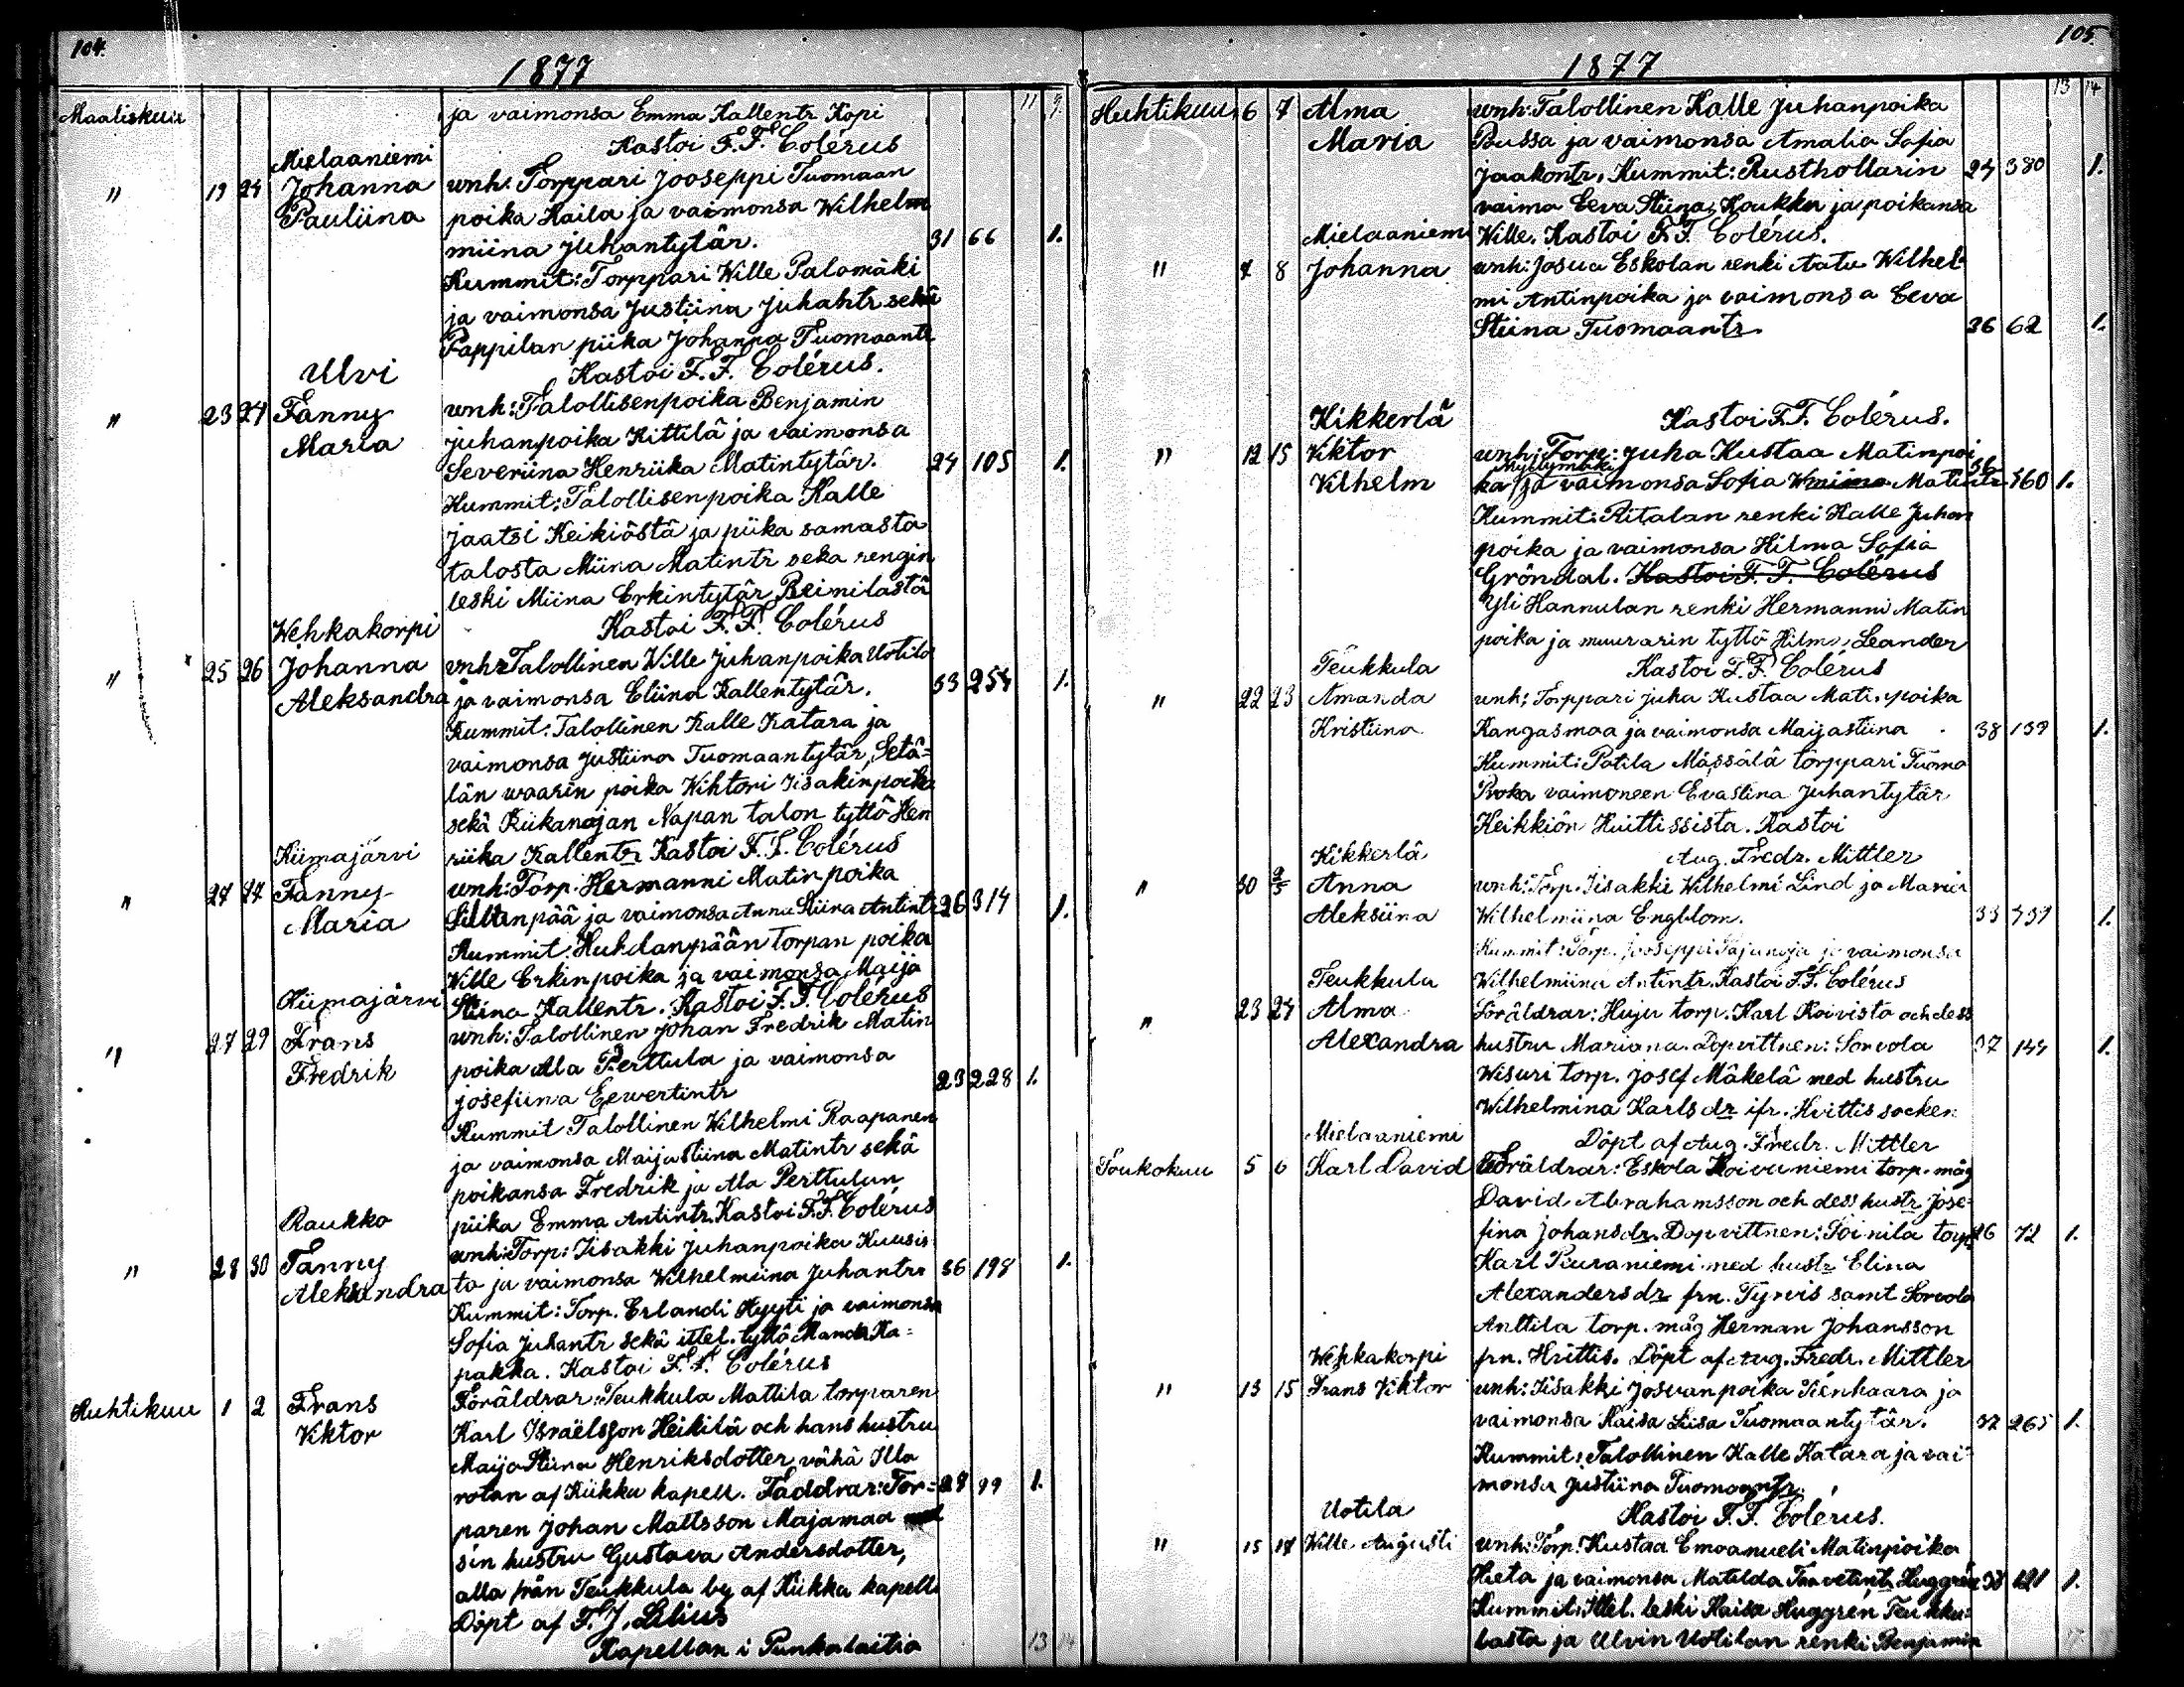 104.
1877
Maaliskuu ja vaimonsa Emma Kallentr Köpi 11 9
Kastoi F. F. Colérus
Mielaaniemi
" 19 24 Johanna unh: Torppari Jooseppi Tuomaan
Pauliina poika Kaila ja vaimonsa Wilhelm
miina Juhantytär. 31 66 1.
Kummit: Torppari Wille Palomäki
ja vaimonsa Justiina Juhantr sekä
Pappilan piika Johanna Tuomaantr
Ulvi Kastoi F. F. Colérus.
" 23 24 Fanny unh: Talollisenpoika Benjamin
Maria Juhanpoika Kittilä ja vaimonsa
Severiina Henriika Matintytär. 24 105 1.
Kummit: Talollisenpoika Kalle
Jaatsi Keikiöstä ja piika samasta
talosta Miina Matintr seka rengin
leski Miina Erkintytär Beinilastä
Wehkakorpi Kastoi F. F. Colérus
" 25 26 Johanna unh: Talollinen Wille Juhanpoika Uotila
Aleksandra ja vaimonsa Eliina Kallentytär. 33 254 1.
Kummit: Talollinen Kalle Katara ja
vaimonsa Justiina Tuomaantytär, Setä=
län waarin poika Wihtori Iisakinpoika
sekä Riikanojan Napan talon tyttö Hen
Kiimajärvi riika Kallentr Kastoi F. F. Colérus
" 27 27 Fanny unh: Torp. Hermanni Matinpoika
Maria Sillanpää ja vaimonsa Anna Stiina Antintr 26 314 1.
Kummit: Huhdanpään torpan poika
Ville Erkinpoika ja vaimonsa Maija
Kiimajärvi Stiina Kallentr. Kastoi F. F. Colérus
" 27 29 Frans unh: Talollinen Johan Fredrik Matin
Fredrik poika Ala Perttula ja vaimonsa
Josefiina Eewertintr 23 228 1.
Kummit Talollinen Wilhelmi Raapanen
ja vaimonsa Maijastiina Matintr sekä
poikansa Fredrik ja Ala Perttulun
Raukko piika Emma Antintr. Kastoi F. F. Colérus
" 28 30 Fanny unh: Torp: Iisakki Juhanpoika Kuusis
Aleksandra to ja vaimonsa Wilhelmiina Juhantr 36 198 1.
Kummit: Torp. Erlandi Hyyti ja vaimonsa
Sofia Juhantr sekä ittel. tyttö Manda Ka=
pakka. Kastoi F. F. Colérus
Huhtikuu 1 2 Frans Föräldrar: Teukkula Mattila torparen
Viktor Karl Israëlsson Heikilä och hans hustru
Maija Stina Henriksdotter, vähä Illo
rotan af Kiikku kapell. Faddrar: Tor= 28 99 1.
paren Johan Mattsson Majamaa med
sin hustru Gustava Andersdotter,
alla från Teukkula by af Kiikka kapell.
Döpt af F. J. Lilius
Kapellan i Punkalaitio 13 14
105.
1877
13 14
Huhtikuu 6 7 Alma unh: Talollinen Kalle Juhanpoika
Maria Bussa ja vaimonsa Amalia Sofia
Jaakontr, Kummit: Rusthollarin 24 380 1.
vaimo Eeva Stiina Koukku ja poikansa
Mielaaniemi Wille. Kastoi F. F. Colérus.
" 7 8 Johanna unh: Josua Eskolan renki Aatu Wilhel
mi Antinpoika ja vaimonsa Eeva
Stiina Tuomaantr. 36 62 1.
Kikkerlä Kastoi F. F. Colérus.
" 12 15 Viktor unh: Torp: Juha Kustaa Matinpoi
Vilhelm ka Myllymäki ja vaimonsa Sofia Wmiina Matintr 36 360 1.
Kummit: Ritalan renki Kalle Juhan
poika ja vaimonsa Hilma Sofia
Gröndal. Kastoi F. F. Colérus
Yli Hannulan renki Hermanni Matin
poika ja muurarin tyttö Hilma Leander
Teukkula Kastoi F. F. Colérus
" 22 23 Amanda unh: Torppari Juha Kustaa Matinpoika
Kristiina Kangasmaa ja vaimonsa Maijastiina 38 139 1.
Kummit: Potila Mässälä torppari Tuomo
Proka vaimoneen Evastina Juhantytär
Keikkiön Huittissista. Kastoi
Kikkerlä Aug. Fredr. Mittler
" 30 2/5 Anna unh: Torp. Iisakki Wilhelmi Lind ja Maria
Aleksiina Wilhelmiina Engblom. 33 1.
Kummit: Torp. Jooseppi Pajunoja ja vaimonsa
Teukkula Wilhelmiina Antintr. Kastoi F. F. Colérus
" 23 24 Alma Föräldrar: Huju torp. Karl Koivisto och dess
Alexandra hustru Mariana. Dopvittnen: Sorvola 37 144 1.
Wisuri torp. Josef Mäkelä med hustru
Wilhelmina Karlsdr ifr. Hvittis socken
Mielaaniemi Döpt af Aug. Fredr. Mittler
Toukokuu 5 6 Karl David Föräldrar: Eskola Koivuniemi torp. måg
David Abrahamsson och dess hustr Jose=
fina Johansdr. Dopvittnen: Toinila torp. 26 72 1.
Karl Piuraniemi med hustr Elina
Alexandersdr frn. Tyrvis samt Sorvola
Anttila torp. måg Herman Johansson
Wehkakorpi frn. Hvittis. Döpt af Aug. Fredr. Mittler
" 13 15 Frans Viktor unh: Iisakki Josuanpoika Tienhaara ja
vaimonsa Kaisa Liisa Tuomaantytär. 32 265 1.
Kummit: Talollinen Kalle Katara ja vai
monsa Justiina Tuomaantr.
Uotila Kastoi F. F. Colérus.
" 15 17 Ville Augusti unh: Torp: Kustaa Emaanueli Matinpoika
Hieta ja vaimonsa Matilda Taavetintr Huggrén 38 121 1.
Kummit: Ittel. leski Kaisa Huggrén Teukku=
lasta ja Ulvin Uotilan renki Benjamin